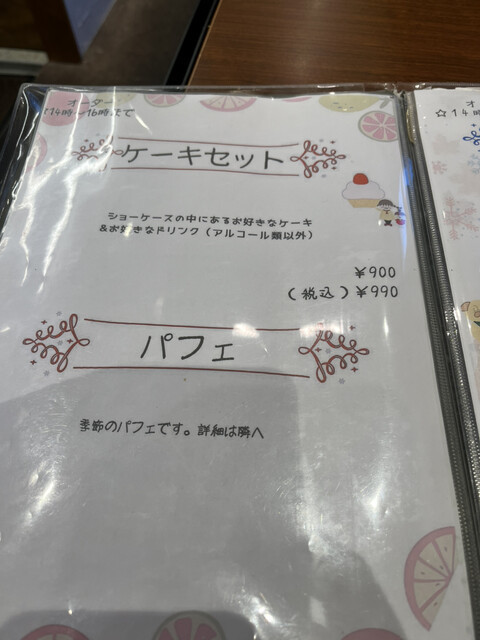 オーダー
14時~16時まで
ケーキセット
ショーケースの中にあるお好きなケーキ
&お好きなドリンク(アルコール類以外)
¥900
(税込)¥990
パフェ
季節のパフェです。詳細は隣へ
☆14時